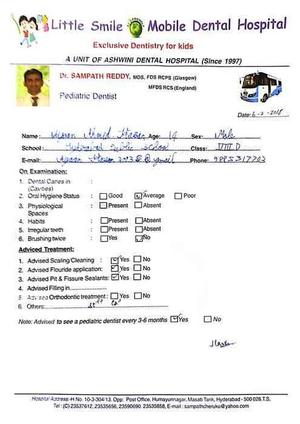 Little Smile Mobile Dental Hospital
Exclusive Dentistry for kids
A UNIT OF ASHWINI DENTAL HOSPITAL (Since 1997)
Dr. SAMPATH REDDY, MDS, FDS RCPS (Glasgow)
MFDS RCS (England)
Pediatric Dentist
Date:
Name: Ahmed Age: 14 Sex: Male
School: Public School Class: VIII.D
E-mail: Phone:
On Examination:
1. Dental Caries in :
(Cavities)
2. Oral Hygiene Status : Good Average Poor
3. Physiological : Present Absent
Spaces
4. Habits : Present Absent
5. Irregular teeth : Present Absent
6. Brushing twice : Yes No
Adviced Treatment:
1. Advised Scaling Cleaning : Yes No
2. Advised Flouride application: Yes No
3. Advised Pit & Fissure Sealants: Yes No
4. Advised Filling in
5. Advised Orthodontic treatment : Yes No
6. Others:
Note: Advised to see a pediatric dentist every 3-6 months Yes No
Hospital Address: H.No. 10-3-304/13, Opp: Post Office, Humayunnagar, Masab Tank, Hyderabad - 500 028.T.S.
Tel: (C) 23537612, 23535656, 23590690 23535858, E-mail: sampathcheruku@yahoo.com